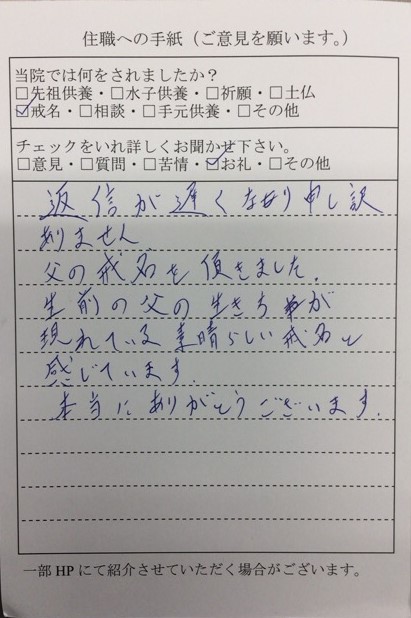 住職への手紙（ご意見を願います。）
当院では何をされましたか？
□先祖供養・□水子供養・□祈願・□土仏
☑戒名・□相談・□手元供養・□その他
チェックをいれ詳しくお聞かせ下さい。
□意見・□質問・□苦情・☑お礼・□その他
返信が遅くなり申し訳
ありません
父の戒名を頂きました。
生前の父の生きちが
現れている素晴らしい戒名と
感じています。
本当にありがとうございます。
一部HPにて紹介させていただく場合がございます。